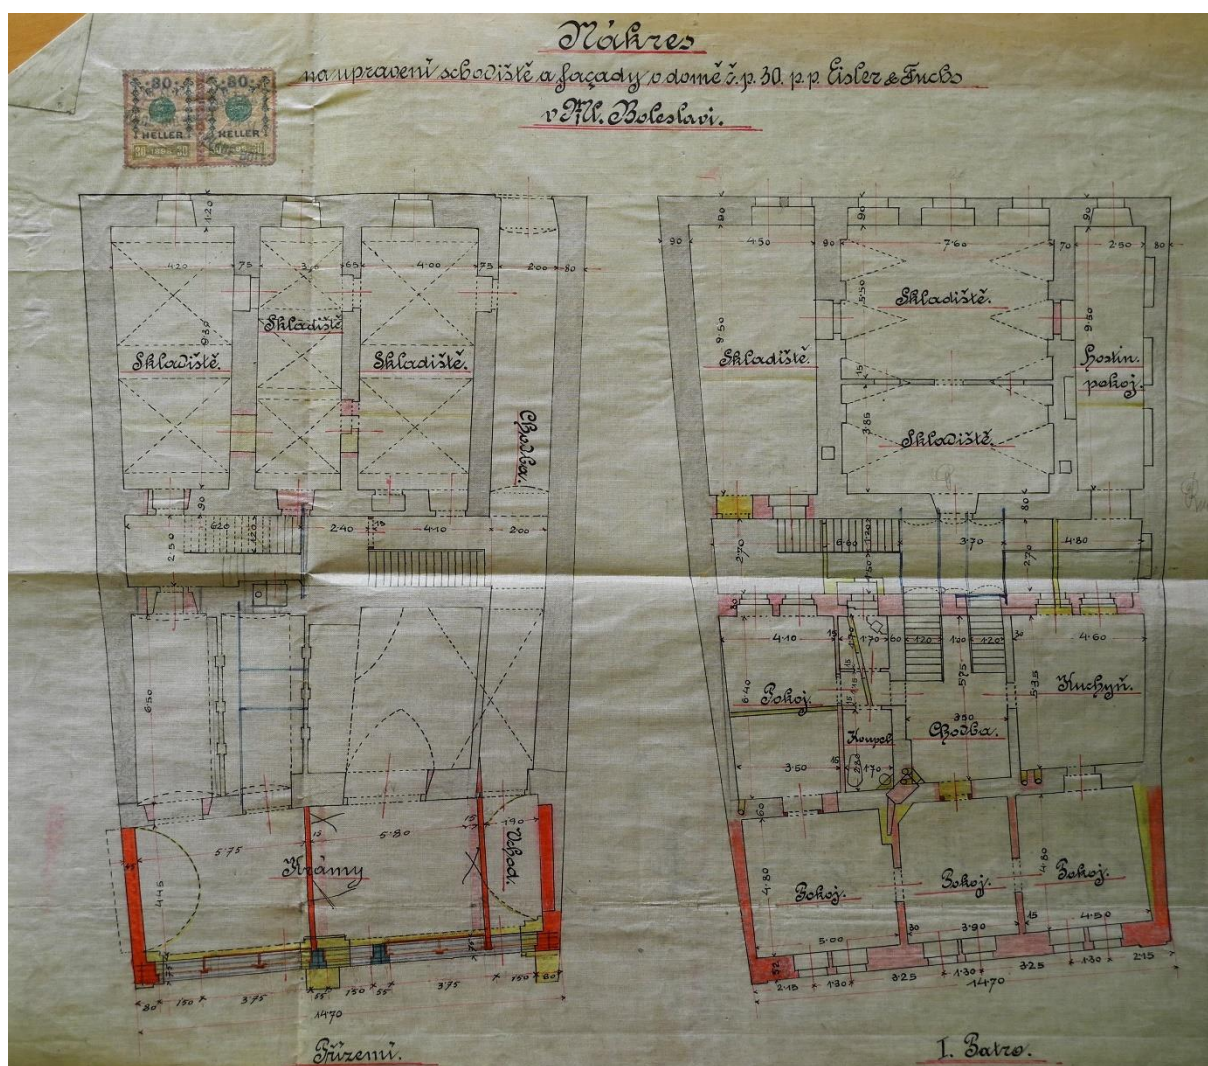 Nákres
na upravení schodiště a façady v domě č.p. 30. p.p. Eisler & Fuchs
v Ml. Boleslavi.
80 80
HELLER HELLER
1·20
4·20 75 65 4·00 75 2·00 80
Skladiště. Skladiště Skladiště.
9·50
Chodba.
90
6·20 1·20 2·40 15 4·10 2·00
2·50
6·50
5·75 15 5·80 15 1·90
Krámy
Vchod.
4·45
75
80 150 3·75 55 150 55 3·75 150 80
14·70
Přízemí.
90 90 90
90 4·50 90 7·60 70 2·90 80
5·50
9·50 9·50
Skladiště.
Skladiště.
Hostin.
pokoj.
15
3·85
Skladiště.
80
2·70 6·60 1·20 3·70 2·70 4·80
1·50
80
4·10 15 1·70 60 1·20 1·00 1·20 30 4·60
5·75 5·35
6·40
Pokoj.
Kuchyň.
3·50
Chodba.
Koupel
3·50 15 1·70
2·80
60
4·80 4·80
Pokoj. Pokoj. Pokoj.
5·00 30 3·90 15 4·50
52
2·15 1·30 3·25 1·30 3·25 1·30 2·15
14·70
I. Patro.